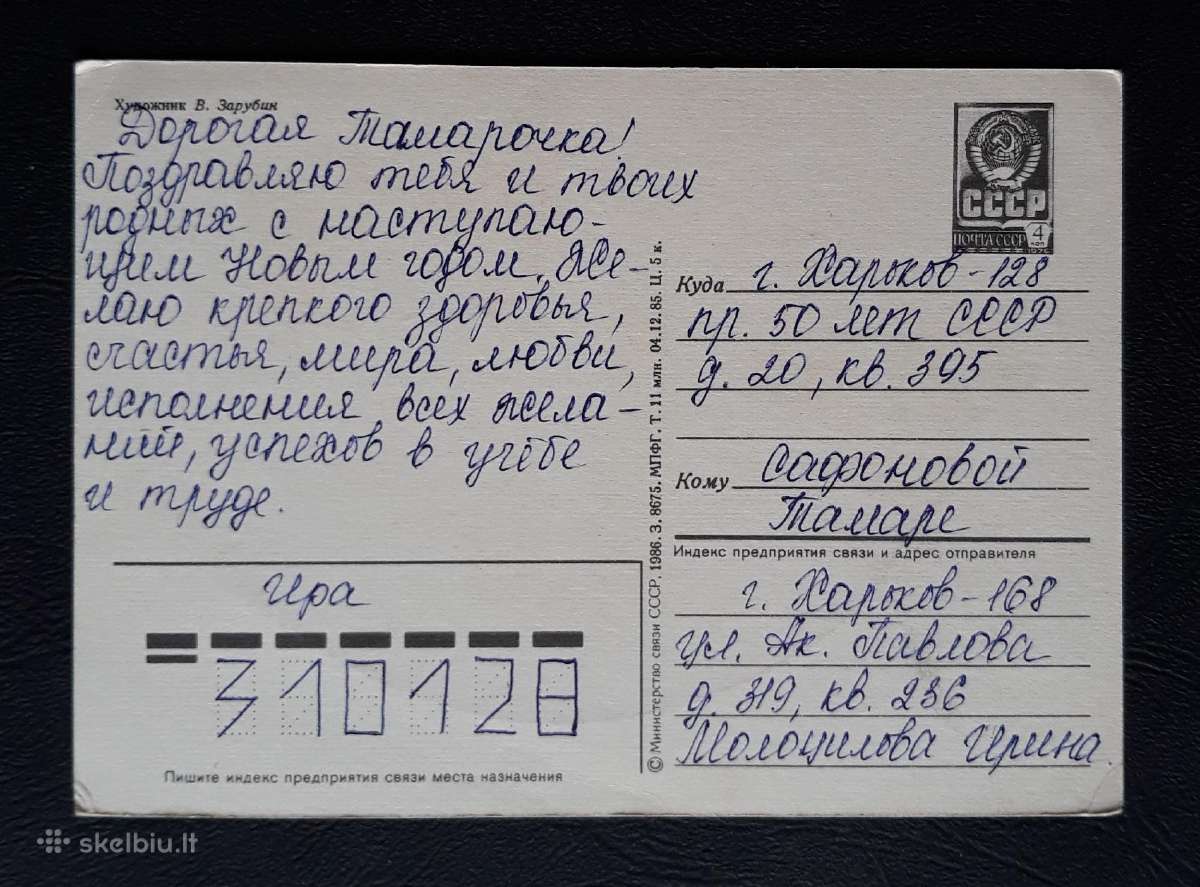 Художник В. Зарубин
Дорогая Тамарочка!
Поздравляю тебя и твоих
родных с наступаю-
щим Новым годом. Же-
лаю крепкого здоровья,
счастья, мира, любви,
исполнения всех жела-
ний, успехов в учёбе
и труде.
Ира
310128
Пишите индекс предприятия связи места назначения
© Министерство связи СССР, 1986. З. 8675. МПФГ. Т. 11 млн. 04.12.85. Ц. 5 к.
СССР
ПОЧТА СССР
4
КОП
1976
Куда г. Харьков-128
пр. 50 лет СССР
д. 20, кв. 395
Кому Сафоновой
Тамаре
Индекс предприятия связи и адрес отправителя
г. Харьков-168
ул. Ак. Павлова
д. 319, кв. 236
Молоцилова Ирина
skelbiu.lt